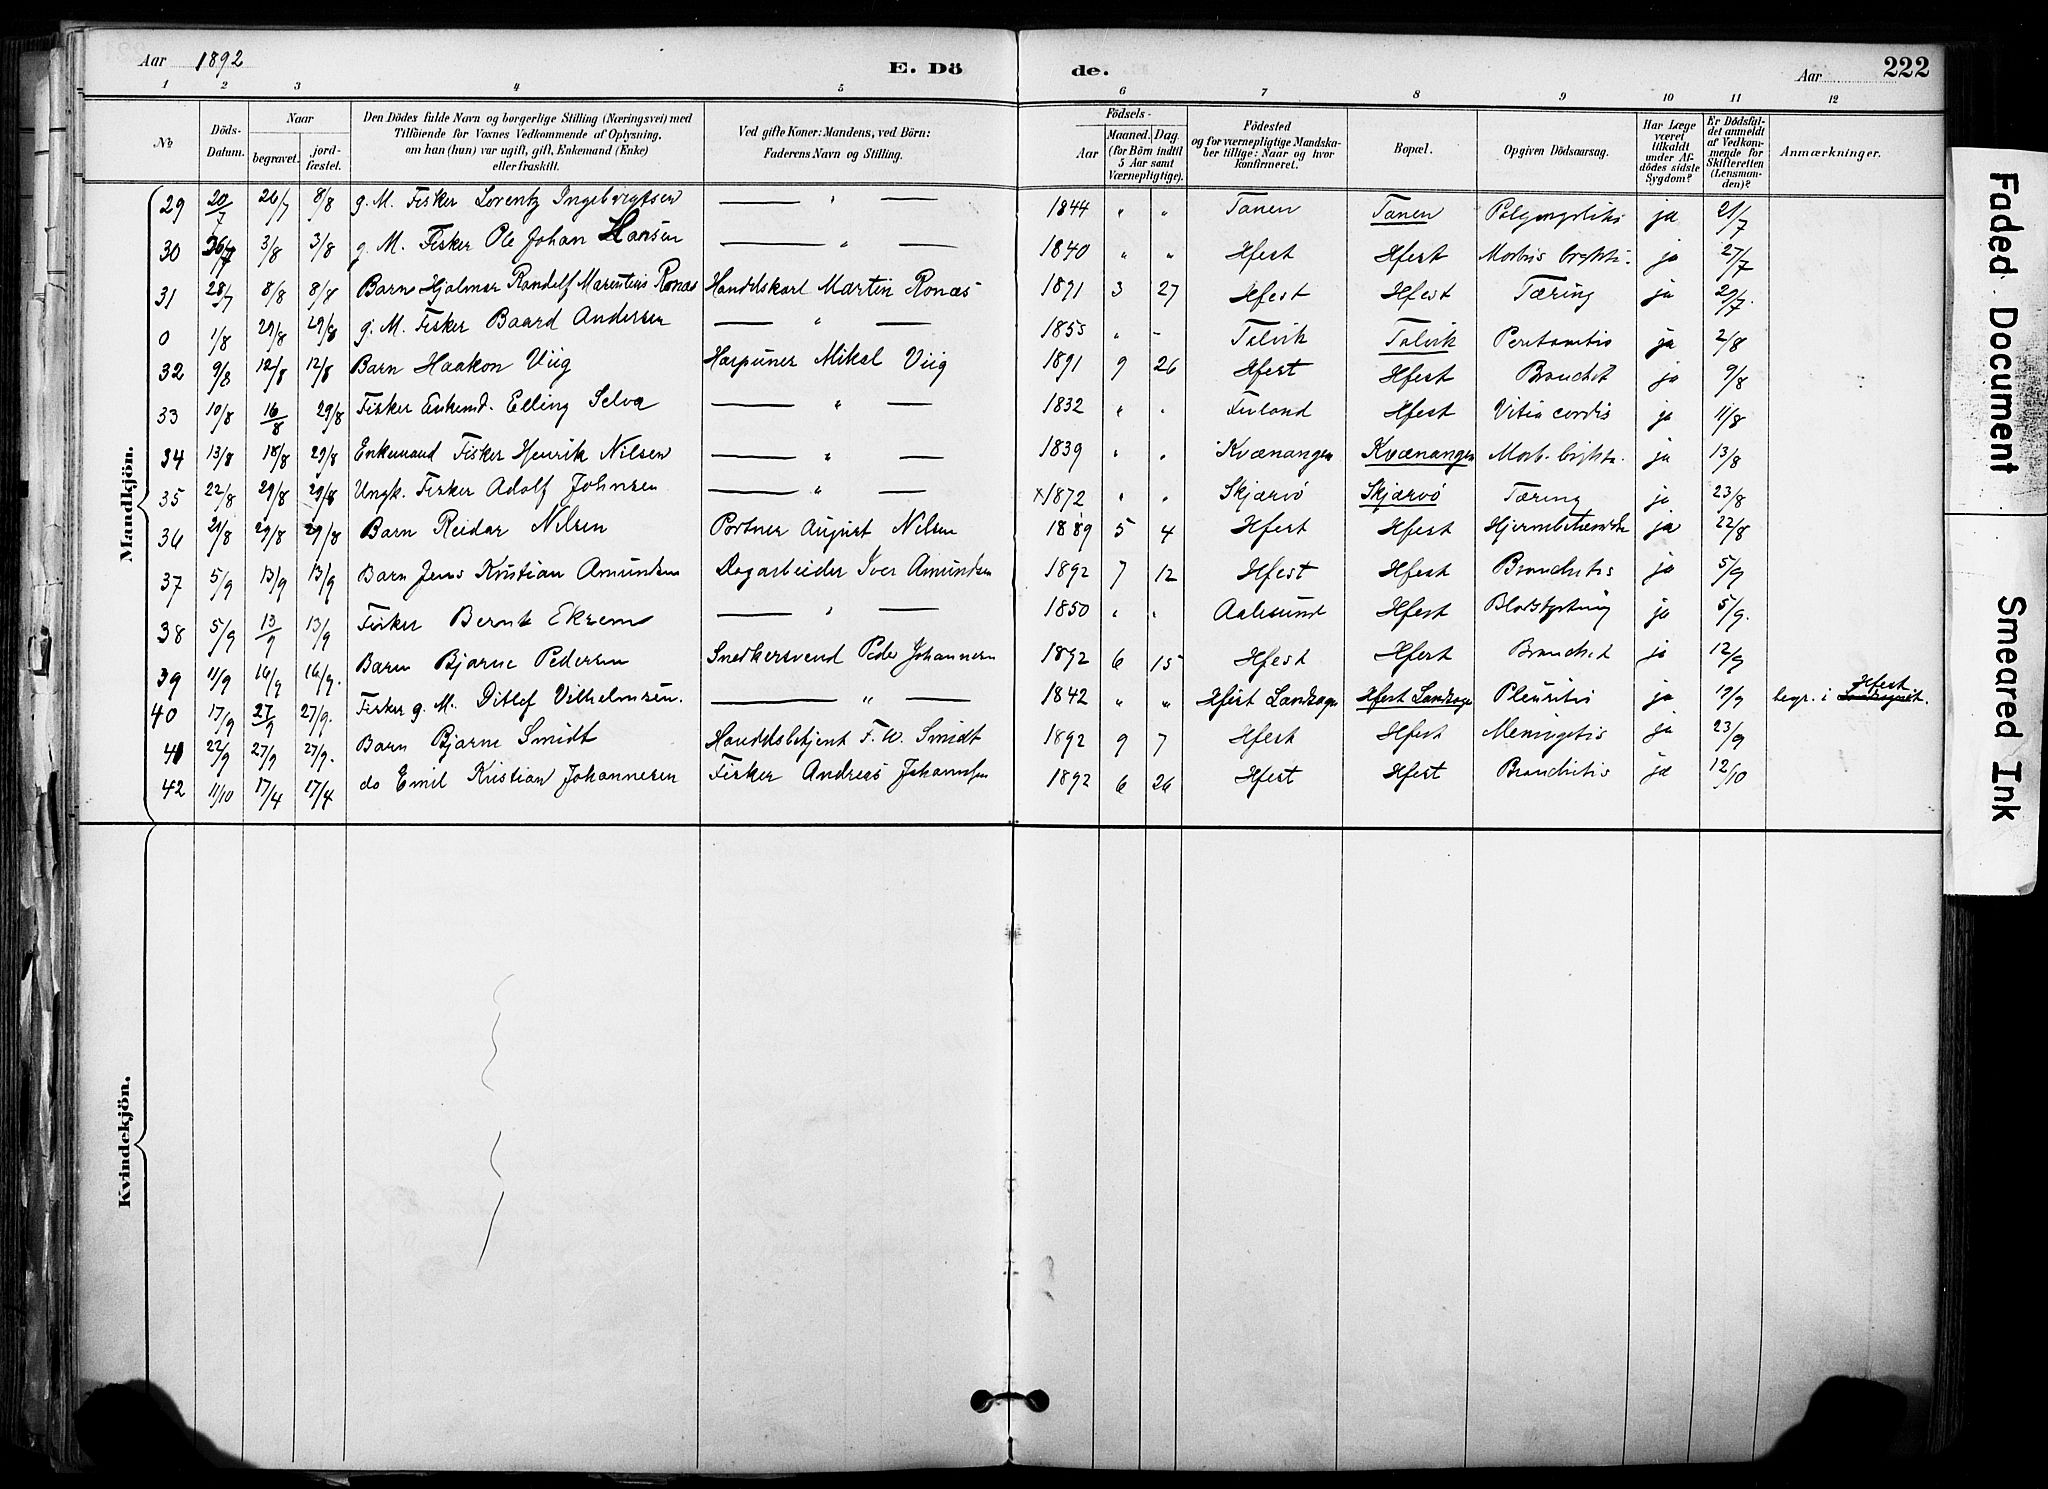 Aar 1892
E. Dö de.
Aar
222
1 2 3 4 5 6 7 8 9 10 11 12
No
Döds-Datum.
Naar begravet. jordfæstet.
Den Dödes fulde Navn og borgerlige Stilling (Næringsvei) med Tilföiende for Voxnes Vedkommende af Oplysning, om han (hun) var ugift, gift, Enkemand (Enke) eller fraskilt.
Ved gifte Koner: Mandens, ved Börn: Faderens Navn og Stilling.
Födsels-
Aar
Maaned. Dag.
(for Börn indtil 5 Aar samt Værnepligtige).
Födested og for værnepligtige Mandskaber tillige: Naar og hvor konfirmeret.
Bopæl.
Opgiven Dödsaarsag.
Har Læge været tilkaldt under Afdödes sidste Sygdom?
Er Dödsfaldet anmeldt af Vedkommende for Skifteretten (Lensmanden)?
Anmærkninger.
Mandkjön.
29 20/7 26/7 8/8 g. M. Fisker Lorentz Ingebrigtsen — " — 1844 " " Tanen Tanen ja 21/7
30 26/7 3/8 3/8 g. M. Fisker Ole Johan Hansen — " — 1840 " " Hfest Hfest Morbus brightii. ja 27/7
31 28/7 8/8 8/8 Barn Hjalmar Randolf Marentius Ronæs Handelskarl Martin Ronæs 1891 3 27 Hfest Hfest Tæring ja 29/7.
0 1/8 29/8 29/8 g. M. Fisker Baard Andersen — " — 1855 " - Talvik Talvik ja 2/8
32 9/8 12/8 12/8 Barn Haakon Viig Harpuner Mikal Viig 1891 9 26 Hfest Hfest Bronchit ja 9/8
33 10/8 16/8 29/8 Fisker Enkemd. Elling Selva — " — 1832 " " Finland Hfest Vitia cordis ja 11/8
34 13/8 18/8 29/8 Enkemand Fisker Henrik Nilsen — " — 1839 " " Kvænangen Kvænangen Morb. brightii. ja 13/8
35 22/8 29/8 29/8 Ungk. Fisker Adolf Johnsen — " — x1872 " " Skjærvö Skjærvö Tæring ja 23/8
36 21/8 29/8 29/8 Barn Reidar Nilsen Portner August Nilsen 1889 5 4 Hfest Hfest ja 22/8
37 5/9 13/9 13/9 Barn Jens Kristian Amundsen Dagarbeider Iver Amundsen 1892 7 12 Hfest Hfest Bronchitis ja 5/9
38 5/9 13/9 13/9 Fisker Bernt Ekrem — " — 1850 " " Aalesund Hfest Blodstyrtning ja 5/9.
39 11/9 16/9 16/9. Barn Bjarne Pedersen Snedkersvend Peder Johannesen 1892 6 15 Hfest Hfest Bronchit ja 12/9
40 17/9 27/9 27/9. Fisker g. M. Ditlef Vilhelmsen. — " — 1842 " " Hfest Landsogn Hfest Landsogn Pleuritis ja 19/9 begr. i Hfest
41 22/9 27/9 27/9. Barn Bjarne Smidt Handelsbetjent F. W. Smidt 1892 9 7 Hfest Hfest Meningitis ja 23/9
42 11/10 17/4 17/4 do Emil Kristian Johannesen Fisker Andreas Johannesen 1892 6 26 Hfest Hfest Bronchitis ja 12/10
Kvindekjön.
Faded Document
Smeared Ink